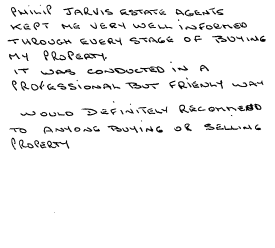 PHILIP JARVIS ESTATE AGENTS
KEPT ME VERY WELL INFORMED
THROUGH EVERY STAGE OF BUYING
MY PROPERTY.
IT WAS CONDUCTED IN A
PROFESSIONAL BUT FRIENLY WAY
WOULD DEFINITELY RECOMMEND
TO ANYONE BUYING OR SELLING
PROPERTY